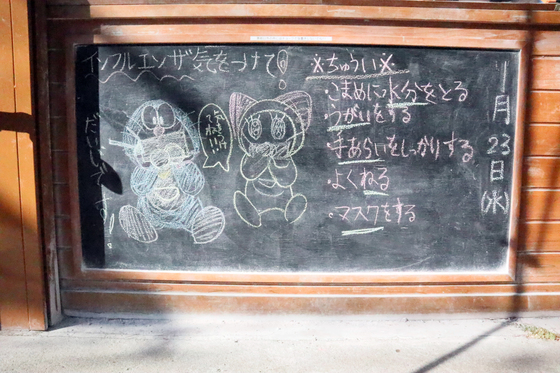 インフルエンザ気をつけて!
※ちゅうい※
・こまめに水分をとる
・うがいをする
・手あらいをしっかりする
・よくねる
・マスクをする
1月23日(水)